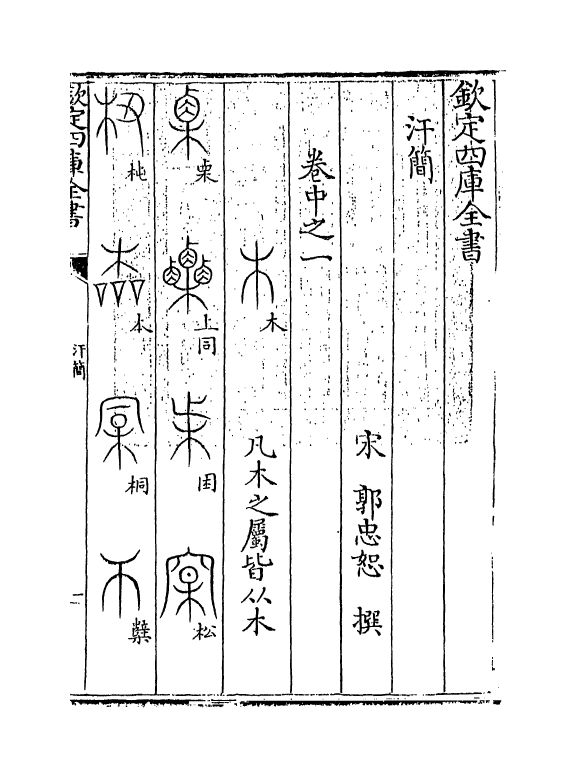 欽定四庫全書
汗簡
宋 郭忠恕 撰
卷中之一
木 凡木之屬皆从木
栗 上同 困 松
杶 本 桐 櫱
欽定四庫全書 汗簡 一